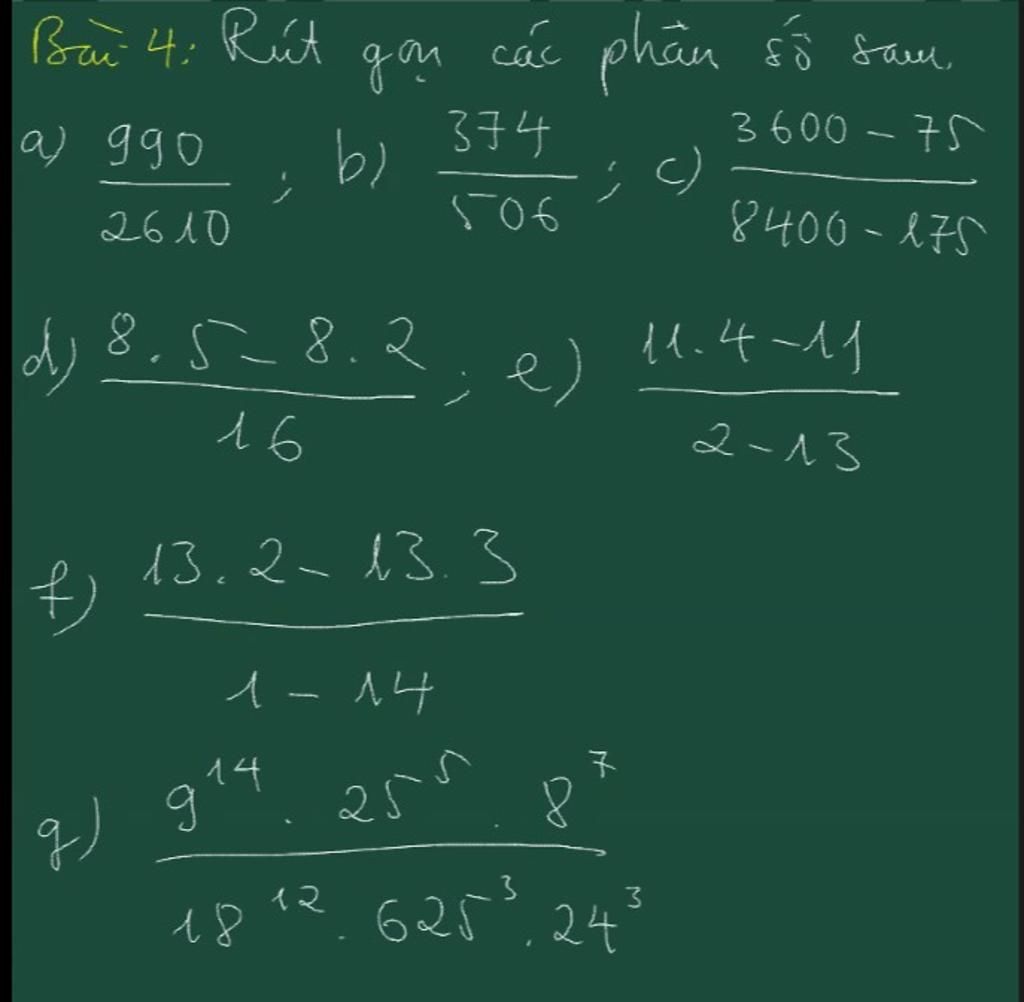 Bài 4: Rút gọn các phân số sau.
a) 990/2610 ; b) 374/506 ; c) (3600 - 75)/(8400 - 175)
d) (8.5 - 8.2)/16 ; e) (11.4 - 11)/(2 - 13)
f) (13.2 - 13.3)/(1 - 14)
g) (9^14 . 25^5 . 8^7)/(18^12 . 625^3 . 24^3)